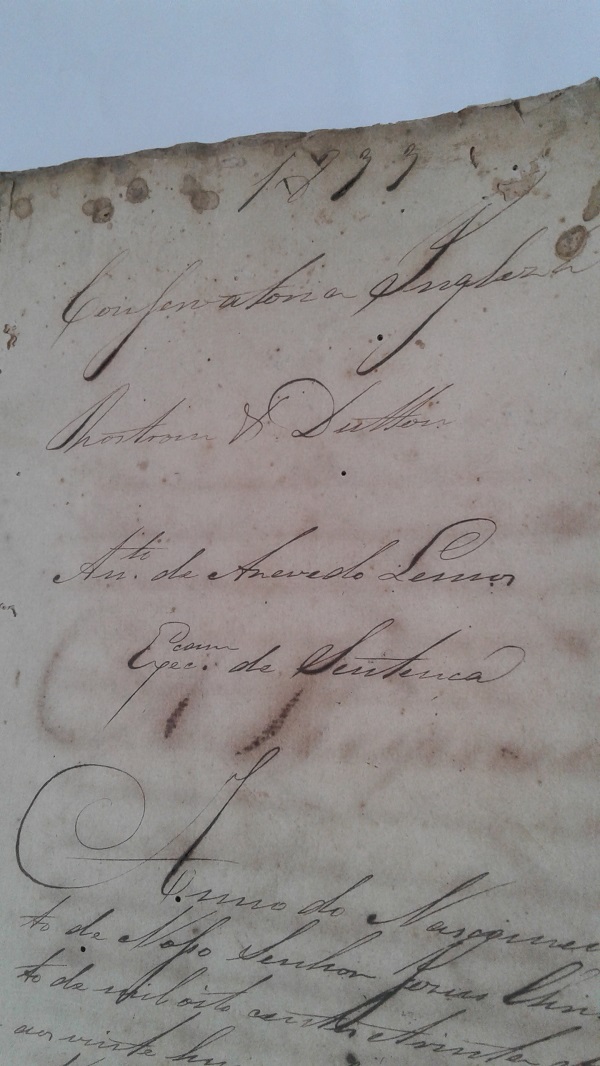 1833
Conservatoria Ingleza
Rostron & Dutton
Anto. de Azevedo Lemos
Execam. de Sentença
Anno do Nascimen
to de Nosso Senhor Jesus Chris
to de mil oito centos trinta
aos vinte hu